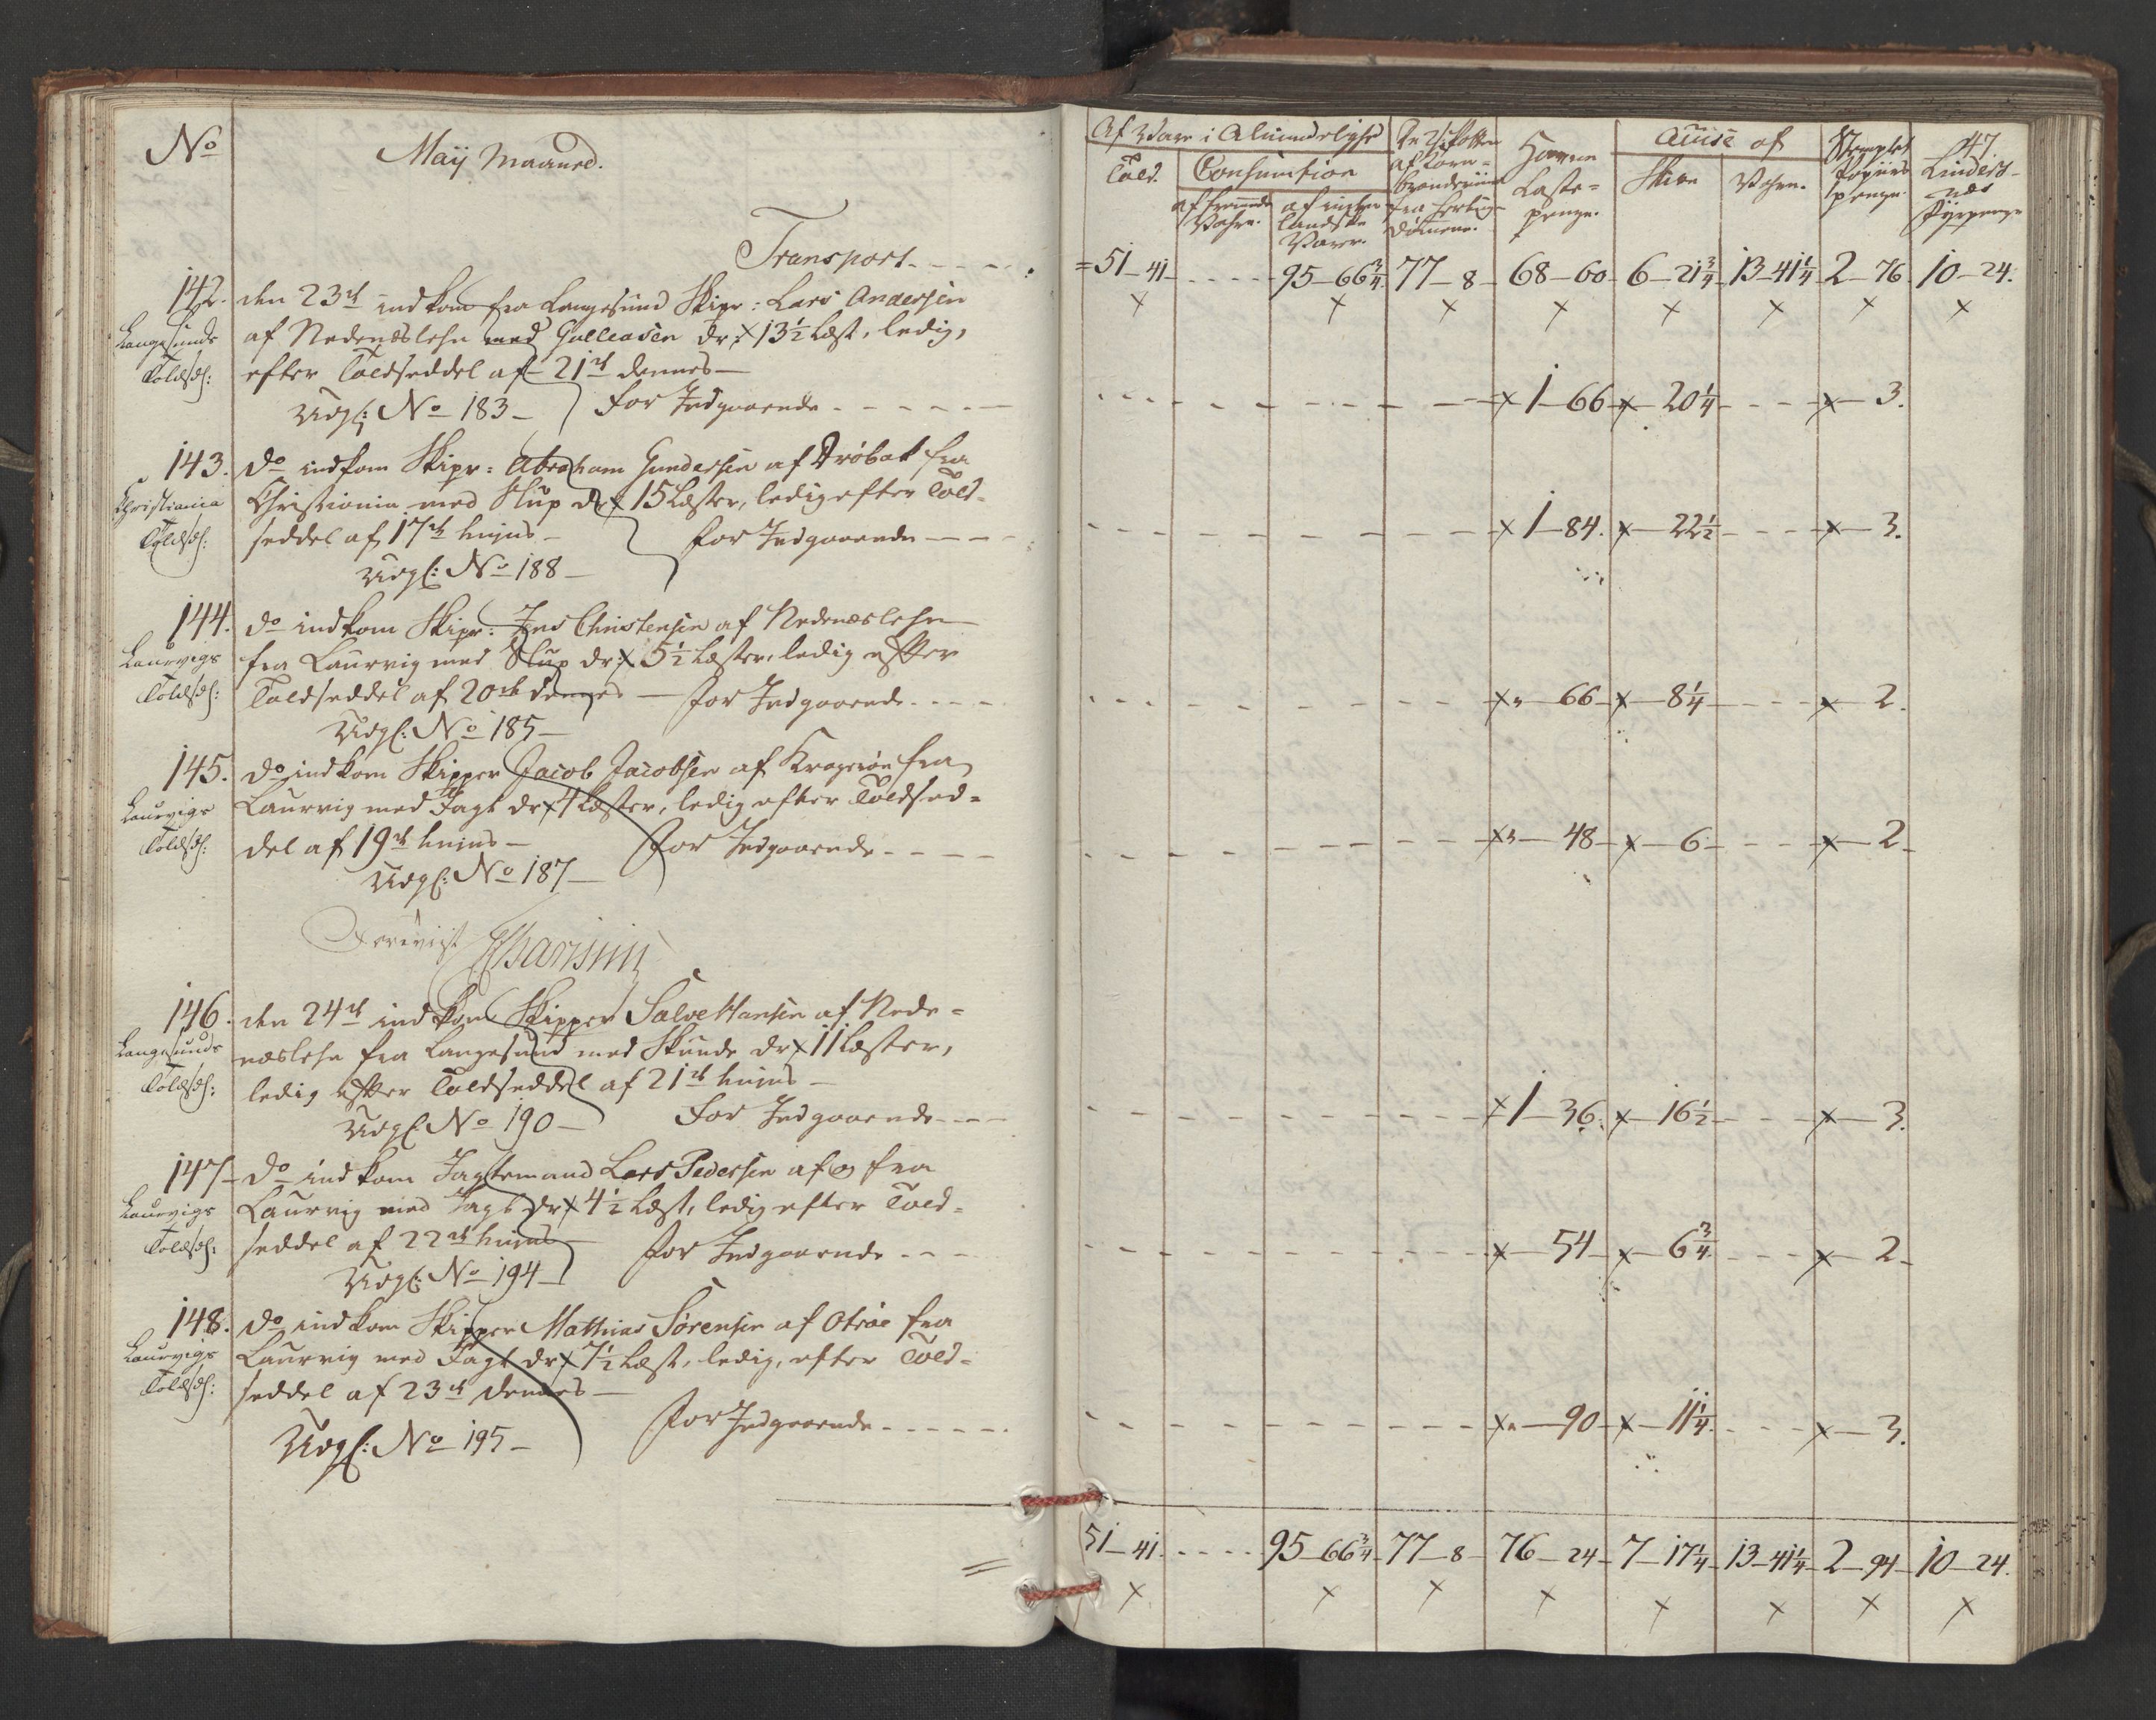 No
Maij Maaned.
Transport
142. den 23de indkom fra Langesund Skipr: Lars Andersen
Langesunds af Nedenæslehn med Galleasen dr: 13½ Læst, ledig,
Toldsedl: efter Toldseddel af 21de dennes
Udgl: No 183 for Indgaaende
143. do indkom Skipr: Abraham Gundersen af Drøbak fra
Christiania Christiania med Slup dr 15 Læster, ledig efter Told-
Toldsedl: seddel af 17de hujus for Indgaaende
Udgl: No 188
144. do indkom Skipr: Jens Christensen af Nedenæslehn
Laurvigs fra Laurvig med Slup dr: 5½ Læster, ledig efter
Toldsedl: Toldseddel af 20de dennes for Indgaaende
Udgl: No 185
145. do indkom Skipper Jacob Jacobsen af Kragerøe fra
Laurvigs Laurvig med Jagt dr 4 Læster, ledig efter Toldsed-
Toldsedl: del af 19de hujus for Indgaaende
Udgl: No 187
146. den 24de indkom Skipper Salve Hansen af Nede-
Langesunds næslehn fra Langesund med Skude dr 11 Læster,
Toldsedl: ledig efter Toldseddel af 21de hujus
Udgl: No 190 For Indgaaende
147 do indkom Jagtemand Lars Pedersen af og fra
Laurvigs Laurvig med Jagt dr 4½ Læst, ledig efter Told-
Toldsedl: seddel af 22de hujus for Indgaaende
Udgl: No 194
148. do indkom Skipper Mathias Sørensen af Otrøe fra
Laurvigs Laurvig med Jagt dr 7½ Læst, ledig, efter Told-
Toldsedl: seddel af 23de dennes
Udgl: No 195 for Indgaaende
47
Af Vare i Almindelighed
Told. Consumtion
af fremmede Vahre. af inden landske Varer.
af Korn-
Brændeviin
fra Hertug-
dømmene.
Havne
Laste-
penge.
Accise af
Skibe Vahre.
Stemplet
Papiirs
penge.
Lindes-
næs
Fyrpenge
51-41 95-66¾ 77-8 68-60 6-21¾ 13-41¼ 2-76 10-24.
1-66 20¼ 3.
1-84. 22½ 3.
66 8¼ 2.
48 6 2
1-36. 16½ 3.
54 6¾ 2
90 11¼ 3.
51-41. 95-66¾ 77-8 76-24 7-17¼ 13-41¼ 2-94 10-24.